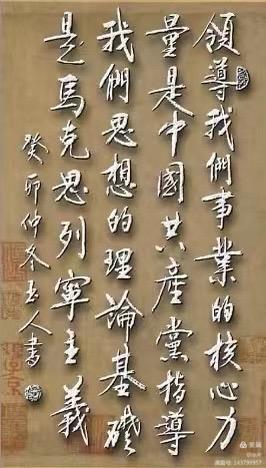 領導我們事業的核心力
量是中國共產黨指導
我們思想的理論基礎
是馬克思列寧主義
癸卯仲冬玉人書
美篇